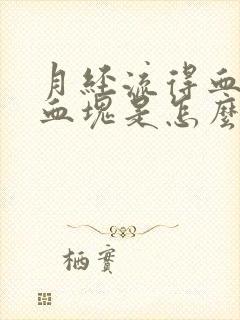 月经流得血
血塊是怎麼
栖實